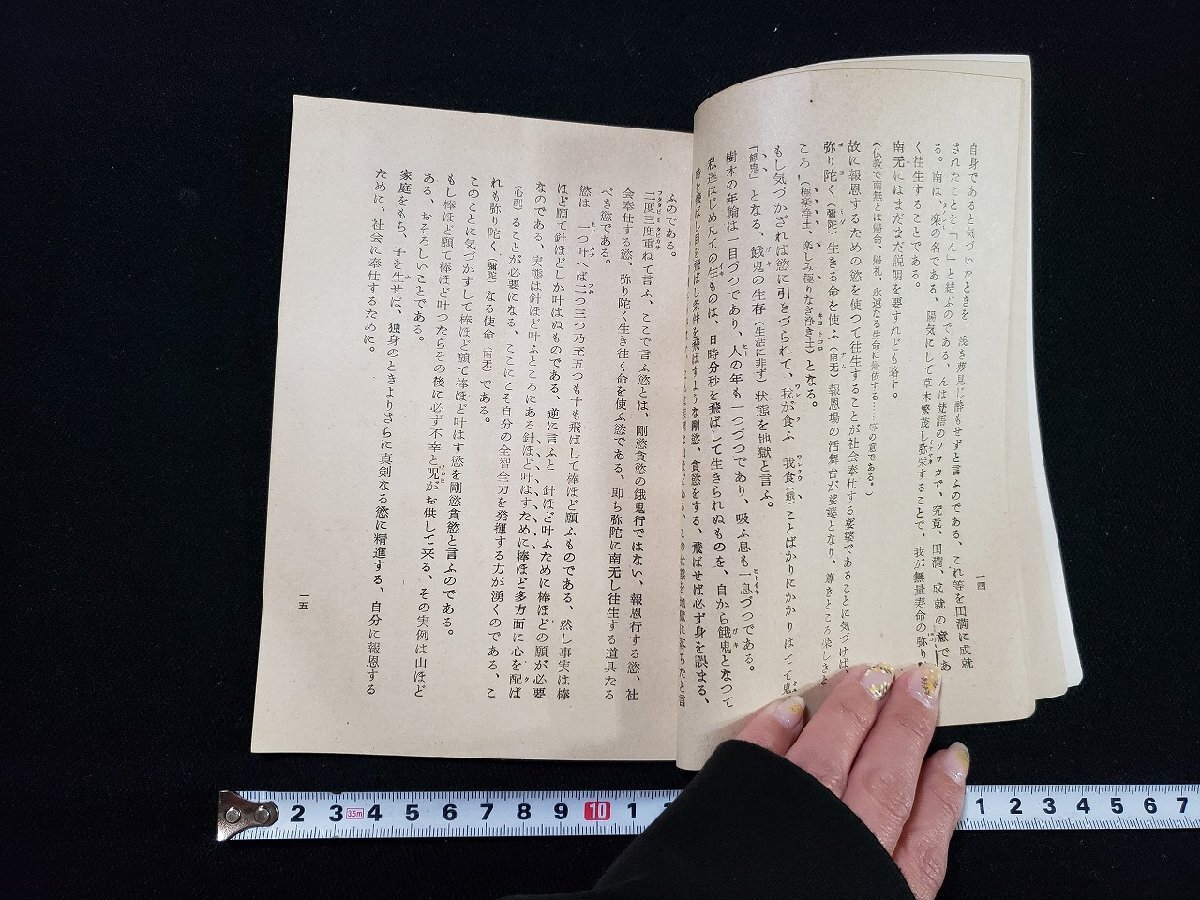 自身であると気づいたときを 浅き夢見じ酔もせずと言ふのである、これ等を円満に成就
されたことを「ん」と結ぶのである、んは梵語の で、究竟、円満、成就の意であ
る。南は、楽の名である、陽気にして草木繁茂し弥栄することで、我が無量寿命の弥り
く往生することである。
南无にはまだまだ説明を要すれども略に。
(仏教で南無とは帰命、帰礼、永遠なる生命に帰依する……等の意である。)
故に報恩するための慾を使つて往生することが社会奉仕する姿であることに気づけば、
弥り陀く(彌陀)生きる命を使ふ(南无)報恩場の活舞台が姿となり、尊きところ楽しきと
ころ(極楽浄土、楽しみ極りなき浄き土)となる。
もし気づかざれば慾に引きづられて、我が食ふ 我食(餓)ことばかりにかかりはてて鬼
「餓鬼」となる、餓鬼の生存(生活に非ず)状態を地獄と言ふ。
樹木の年輪は一目づつであり、人の年も一つづつであり、吸ふ息も一息づつである。
息はじめんての生ものは、日時分秒を飛ばして生きられぬものを、自から餓鬼となつて
を飛ばし条件を飛ばすような剛慾、貪慾をする、飛ばせば必ず身を誤まる、
一四
ふのである。
二度三度重ねて言ふ、ここで言ふ慾とは、剛慾貪慾の餓鬼行ではない、報恩行する慾、社
会奉仕する慾、弥り陀く生き往く命を使ふ慾である、即ち弥陀に南无し往生する道具たる
べき慾である。
慾は 一つ叶へば二つ三つ乃至五つも十も飛ばして棒ほど願ふものである、然し事実は棒
ほど願て針ほどしか叶はぬものである、逆に言ふと 針ほど叶ふために棒ほどの願が必要
なのである、実態は針ほど叶ふところにある針ほど叶はすために棒ほど多方面に心を配ば
(心配)ることが必要になる、ここにこそ自分の全智全力を発揮する力が湧くのである、こ
れも弥り陀く(彌陀)なる使命(南无)である。
このことに気づかずして棒ほど願て棒ほど叶はす慾を剛慾貪慾と言ふのである。
もし棒ほど願て棒ほど叶つたらその後に必ず不幸と児がお供して来る、その実例は山ほど
ある、おそろしいことである。
家庭をもち、子を生せば、独身のときよりさらに真剣なる慾に精進する、自分に報恩する
ために、社会に奉仕するために。
一五
2 3 3.5m 4 5 6 7 8 9 10 1 1 2 3 4 5 6 7